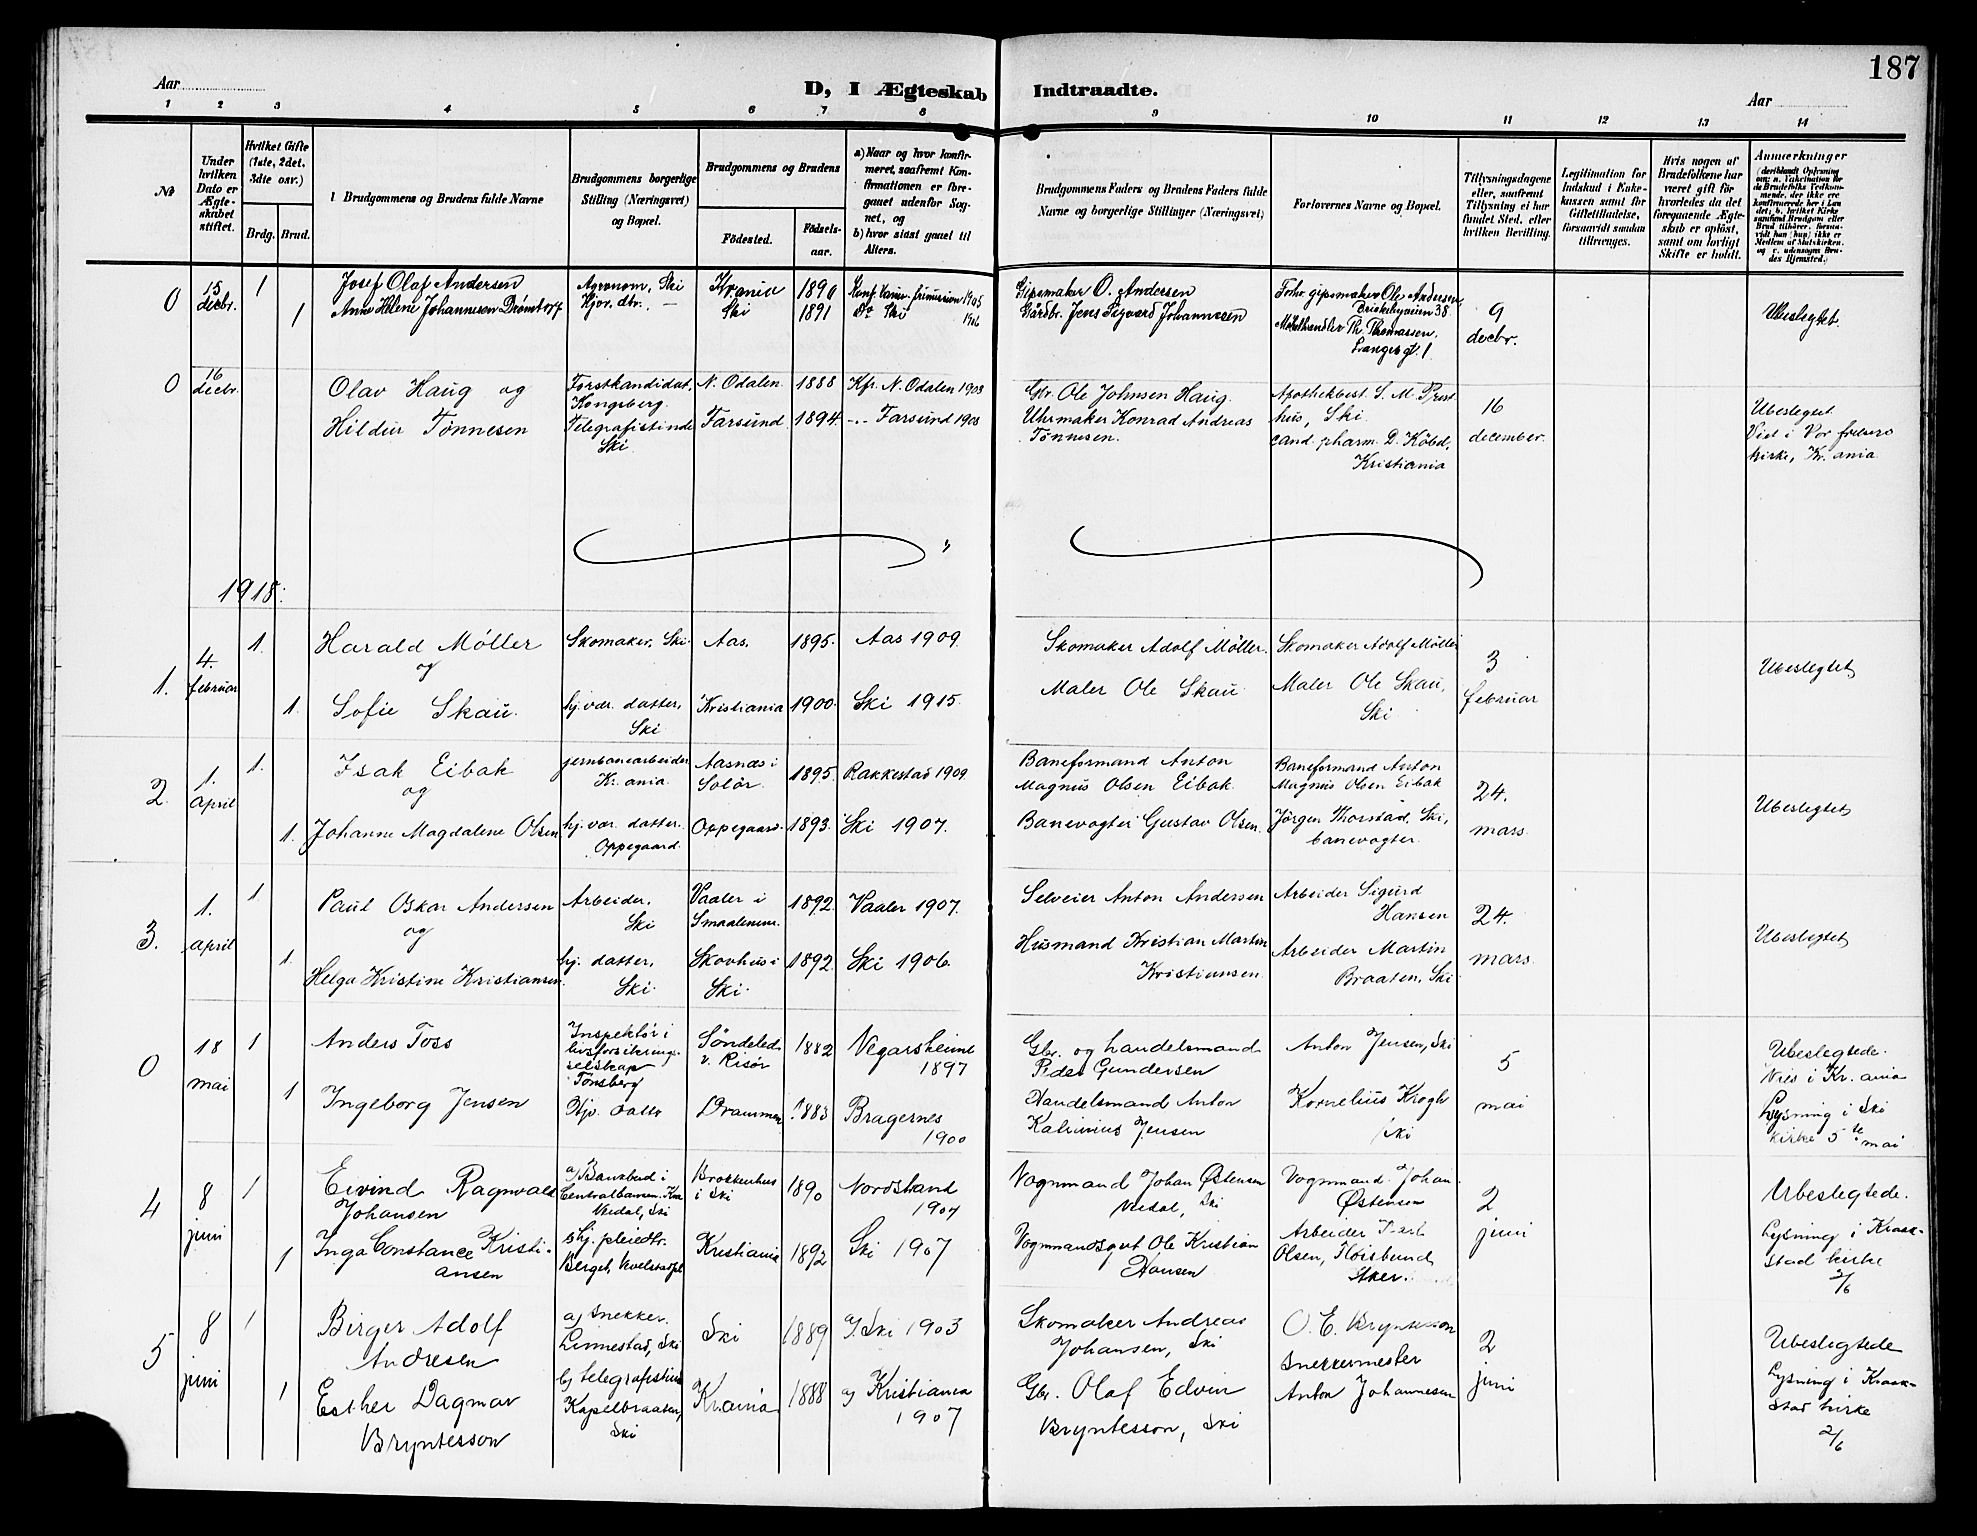 187
Aar
D, I Ægteskab Indtraadte.
Aar
1 2 3 4 5 6 7 8 9 10 11 12 13 14
№
Under hvilken Dato er Ægteskabet stiftet.
Hvilket Gifte (1ste, 2det, 3die osv.)
Brdg. Brud.
Brudgommens og Brudens fulde Navne
Brudgommens borgerlige Stilling (Næringsvei) og Bopæl.
Brudgommens og Brudens
Fødested.
Fødselsaar.
a) Naar og hvor konfirmeret, saafremt Konfirmationen er foregaaet udenfor Sognet, og
b) hvor sidst gaaet til Alters.
Brudgommens Faders og Brudens Faders fulde Navne og borgerlige Stillinger (Næringsvei)
Forlovernes Navne og Bopæl.
Tillysningsdagene eller, saafremt Tillysning ei har fundet Sted, efter hvilken Bevilling.
Legitimation for Indskud i Enkekassen samt for Giftetilladelse, forsaavidt saadan tiltrænges.
Hvis nogen af Brudefolkene har været gift før hvorledes da det foregaaende Ægteskab er opløst, samt om lovligt Skifte er holdt.
Anmerkninger
0 15 decbr. 1 Josef Olaf Andersen Agronom, Ski Kr.ania 1890 1905 Gipsmaker O. Andersen Forh. gipsmaker Ole Andersen, Briskebyveien 38
1 Anne Helene Johannesen Drömtorp Hjv. dtr. — Ski 1891 Do Ski 1906 Gårdbr. Jens Sigvard Johannesen Möbelhandler Th. Thomassen, Langes gt. 1
9 decbr. Ubeslegtet.
0 16 decbr. Olav Haug og Forstkandidat, Kongsberg. N. Odalen. 1888 Kfr. N. Odalen 1903 Gbr. Ole Johnsen Haug. Apothekbest. S. M. Presthus, Ski
Hildur Tønnesen Telegrafistinde Ski Farsund 1894. -"- Farsund 1908 Uhrmaker Konrad Andreas Tønnesen. cand. pharm. D. Købd, Kristiania
16 december. Ubeslegtet Viet i Vor frelsers kirke, Kr.ania
1918.
1. 4. februar 1. Harald Möller og Skomaker, Ski. Aas. 1895. Aas 1909. Skomaker Adolf Möller. Skomaker Adolf Möller
1. Sofie Skau. hj.vær. datter, Ski Kristiania 1900. Ski 1915. Maler Ole Skau. Maler Ole Skau, Ski
3 februar Ubeslegtet
2. 1. april 1. Isak Eibak og jernbanearbeider Kr.ania Aasnæs i Solör. 1895. Rakkestad 1909. Baneformand Anton Magnus Olsen Eibak. Baneformand Anton Magnus Olsen Eibak
1. Johanne Magdalene Olsen hj.vær. datter. Oppegaard. Oppegaard. 1893. Ski 1907. Banevogter Gustav Olsen. Jörgen Thorstad, Ski, banevogter.
24. mars. Ubeslegtet
3. 1. april 1 Paul Oskar Andersen og Arbeider, Ski Vaaler i Smaalenene. 1892. Vaaler 1907. Selveier Anton Andersen Arbeider Sigurd Hansen
1. Helga Kristine Kristiansen. hj. datter, Ski. Skovhus i Ski. 1892. Ski 1906. Husmand Kristian Martin Kristiansen. Arbeider Martin Braaten, Ski.
24. mars. Ubeslegtet
0 18 mai 1 Anders Toss Inspektör i livsforsikringsselskap Tönsberg Söndeled v. Risör 1882 Vegarsheime 1897 Gbr. og handelsmand Peder Gundersen Anton Jensen, Ski
1 Ingeborg Jensen Hjv. datter Drammen 1883 Bragernes 1900 Handelsmand Anton Kalinius Jensen Kornelius Krogh Ski
5 mai Ubeslegtede. Vies i Kr.ania Lysning i Ski kirke 5te mai
4 8 juni 1 Eivind Ragnvald Johansen a) Bankbud i Centralbanken. Kra Verdal, Ski Brokkenhus i Ski 1890 Nordstrand 1904 Vognmand Johan Østensen Verdal, Ski Vognmand Johan Østensen
1 Inga Constance Kristiansen b) hj. pleiedtr. Berget, Kristiania 1892 Ski 1907 Vognmandsgut Ole Kristian Hansen Arbeider Karl Olsen, Fløisbund Aker.
2 juni Ubeslegtede. Lysning i Kraakstad kirke 2/6
5 8 juni 1 Birger Adolf Andresen a) Snekker. Linnestad, Ski Ski 1889 Ski 1903 Skomaker Andreas Johansen, Ski O. E. Bryntesson Snekkermester
1 Esther Dagmar Bryntesson b) telegrafistinde Kapelbraaten, Ski Kr.ania 1888 Kristiania 1907 Gbr. Olaf Edvin Bryntesson, Ski Anton Johannesen
2 juni Ubeslegtede Lysning i Kraakstad kirke 2/6